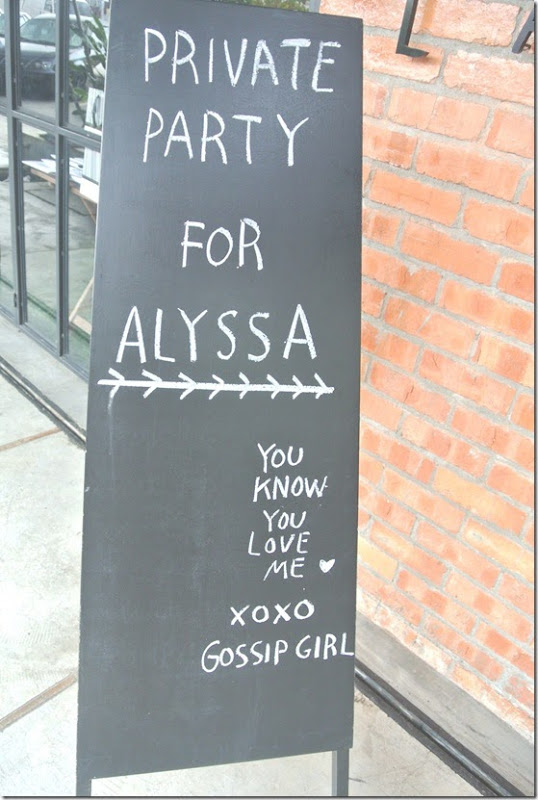 PRIVATE
PARTY
FOR
ALYSSA
YOU
KNOW
YOU
LOVE
ME
XOXO
GOSSIP GIRL